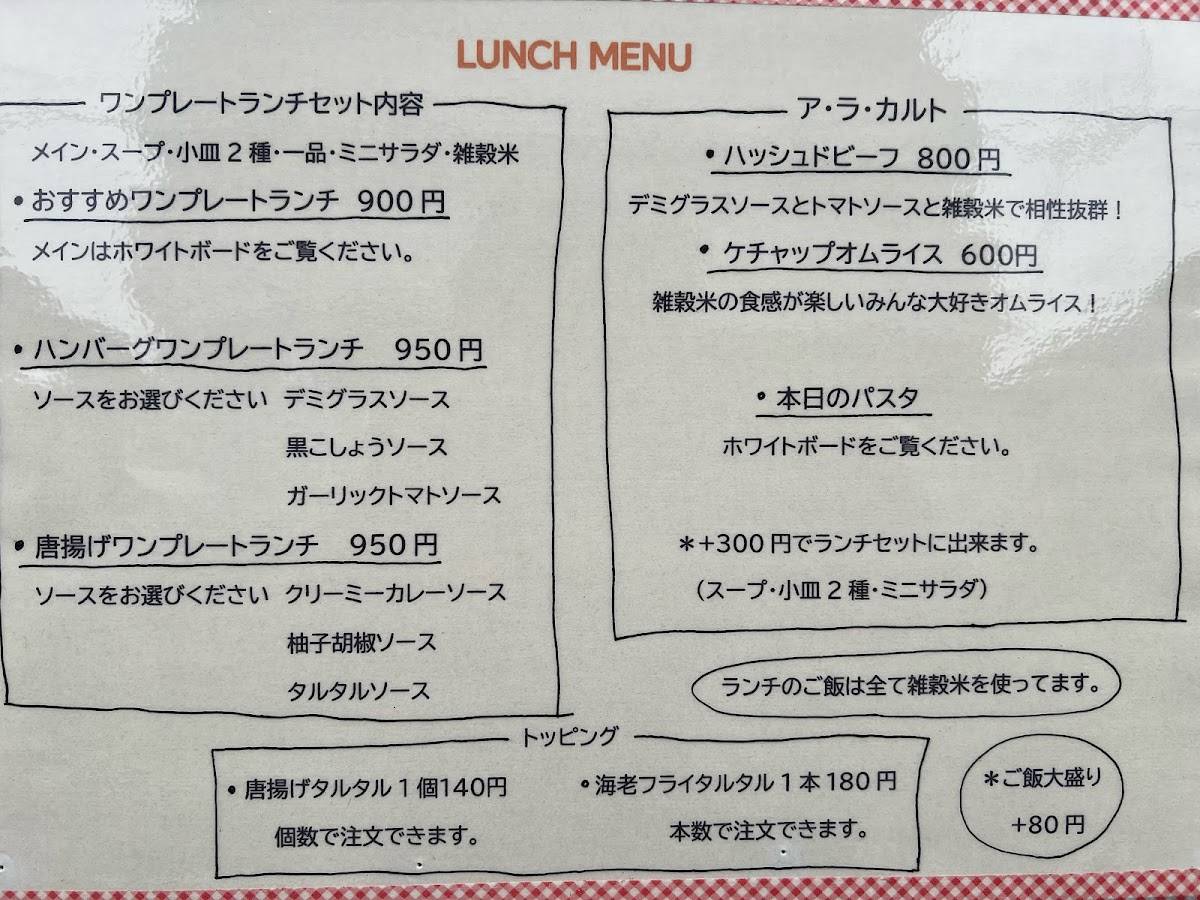 LUNCH MENU
ワンプレートランチセット内容
メイン・スープ・小皿2種・一品・ミニサラダ・雑穀米
・おすすめワンプレートランチ 900円
メインはホワイトボードをご覧ください。
・ハンバーグワンプレートランチ 950円
ソースをお選びください デミグラスソース
黒こしょうソース
ガーリックトマトソース
・唐揚げワンプレートランチ 950円
ソースをお選びください クリーミーカレーソース
柚子胡椒ソース
タルタルソース
ア・ラ・カルト
・ハッシュドビーフ 800円
デミグラスソースとトマトソースと雑穀米で相性抜群！
・ケチャップオムライス 600円
雑穀米の食感が楽しいみんな大好きオムライス！
・本日のパスタ
ホワイトボードをご覧ください。
＊+300円でランチセットに出来ます。
（スープ・小皿2種・ミニサラダ）
ランチのご飯は全て雑穀米を使ってます。
トッピング
・唐揚げタルタル1個140円
個数で注文できます。
・海老フライタルタル1本180円
本数で注文できます。
＊ご飯大盛り
+80円